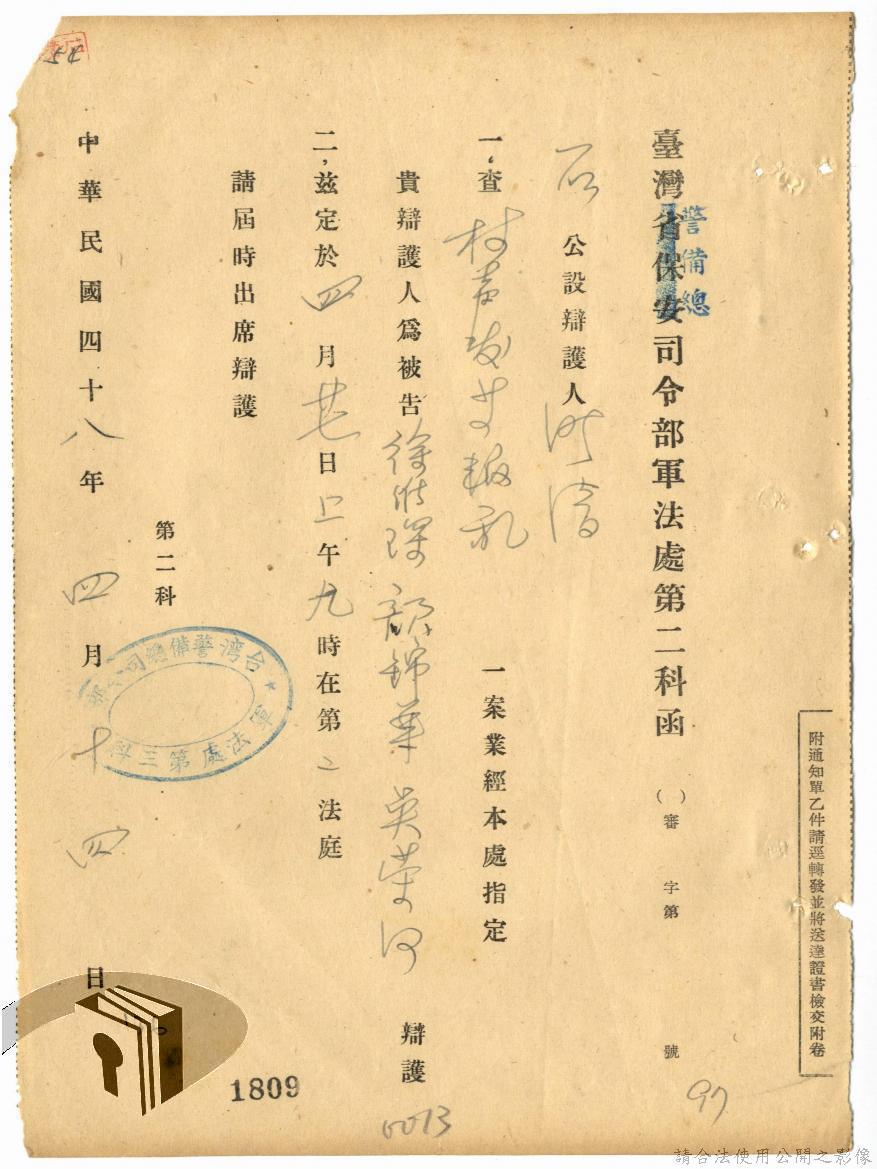 附通知單乙件請逕轉發並將送達證書檢交附卷
臺灣省保安司令部軍法處第二科函 ( )審 字第 號
警備總
97
公設辯護人
一、查 等叛亂 一案業經本處指定
貴辯護人為被告 錦華 吳榮 辯護
二、茲定於四月廿 日上午九時在第二法庭
請屆時出席辯護
第二科
台湾警備總司令部
軍法處第三科
中華民國四十八年四月十四日
1809
0013
54
請合法使用公開之影像